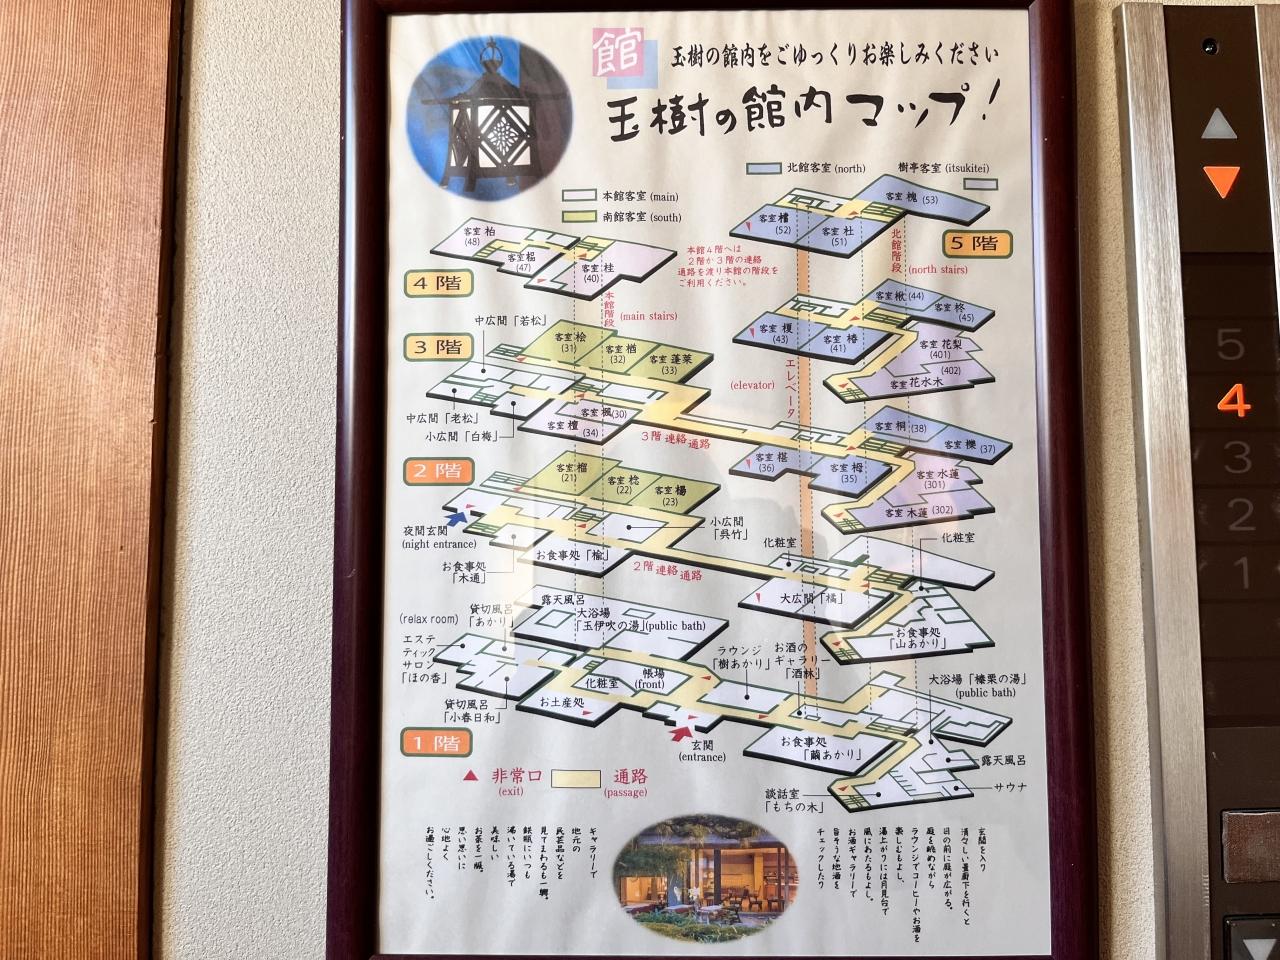 館
玉樹の館内をごゆっくりお楽しみください
玉樹の館内マップ!
北館客室 (north)
樹亭客室 (itsukitei)
本館客室 (main)
南館客室 (south)
5階
客室 槐 (53)
(52)
客室 杜
(51)
北館階段
(north stairs)
4階
客室 柏
(48)
(47)
客室 桂
(40)
本館4階へは
2階か3階の連絡
通路を渡り本館の階段を
ご利用ください。
本館階段
(main stairs)
(44)
客室 柊
(45)
客室 榎
(43)
客室 椿
(41)
客室 花梨
(401)
(402)
客室 花水木
エレベータ
(elevator)
3階
中広間「若松」
客室 桧
(31)
客室 楢
(32)
客室 蓬莱
(33)
中広間「老松」
小広間「白梅」
客室 楓(30)
客室 檀
(34)
3階 連絡通路
客室 桐 (38)
客室 櫟 (37)
(36)
(35)
客室 水蓮
(301)
客室 木蓮 (302)
2階
客室 榴
(21)
客室 桧
(22)
客室 楊
(23)
夜間玄関
(night entrance)
小広間
「呉竹」
お食事処「楡」
お食事処
「木通」
2階 連絡通路
化粧室
化粧室
大広間「橘」
お食事処
「山あかり」
(relax room)
貸切風呂
「あかり」
露天風呂
大浴場
「玉伊吹の湯」(public bath)
エステ
ティック
サロン
「ほの香」
ラウンジ
「樹あかり」
お酒の
ギャラリー
「酒林」
大浴場「榛栗の湯」
(public bath)
化粧室
帳場
(front)
貸切風呂
「小春日和」
お土産処
1階
玄関
(entrance)
お食事処
「繭あかり」
露天風呂
サウナ
談話室
「もちの木」
非常口
(exit)
通路
(passage)
玄関を入り
清々しい畳廊下を行くと
目の前に庭が広がる。
庭を眺めながら
ラウンジでコーヒーやお酒を
楽しむもよし、
湯上がりには月見台で
風にあたるもよし。
お酒ギャラリーで
旨そうな地酒を
チェックしたり
ギャラリーで
地元の
民芸品などを
見てまわるも一興。
鉄瓶にいつも
沸いている湯で
美味しい
お茶を一服。
思い思いに
心地よく
お過ごしください。
5
4
3
2
1